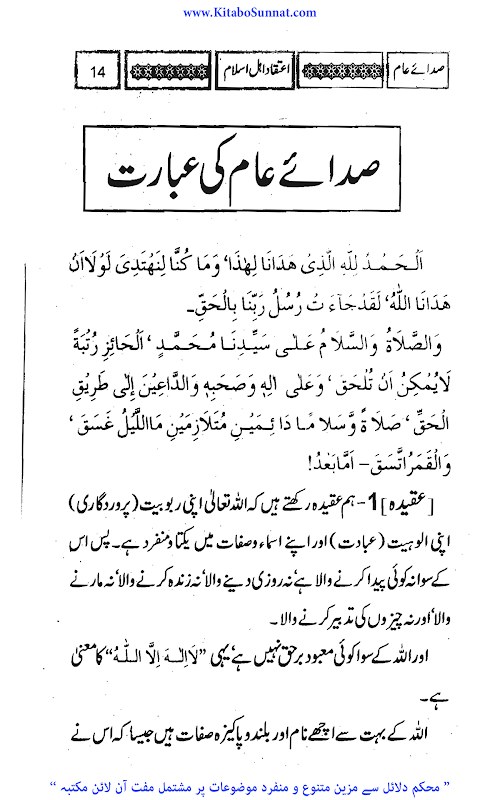 www.KitaboSunnat.com
صدائے عام
اعتقاد اہل اسلام
14
صدائے عام کی عبارت
اَلْحَمْدُ لِلّٰهِ الَّذِىْ هَدَانَا لِهٰذَا' وَمَا كُنَّا لِنَهْتَدِىَ لَوْلَا اَنْ
هَدَانَا اللّٰهُ' لَقَدْ جَاءَتْ رُسُلُ رَبِّنَا بِالْحَقِّ۔
وَالصَّلَاةُ وَالسَّلَامُ عَلٰى سَيِّدِنَا مُحَمَّدٍ' اَلْحَائِزِ رُتْبَةً
لَايُمْكِنُ اَنْ تُلْحَقَ' وَعَلٰى اٰلِهٖ وَصَحْبِهٖ وَالدَّاعِيْنَ اِلٰى طَرِيْقِ
الْحَقِّ' صَلَاةً وَّسَلَامًا دَائِمَيْنِ مُتَلَازِمَيْنِ مَا اللَّيْلُ غَسَقَ'
وَالْقَمَرُ اتَّسَقَ – اَمَّا بَعْدُ!
[عقیدہ] 1- ہم عقیدہ رکھتے ہیں کہ اللہ تعالیٰ اپنی ربوبیت (پروردگاری)
اپنی الوہیت (عبادت) اور اپنے اسماء وصفات میں یکتا و منفرد ہے۔ پس اس
کے سوا نہ کوئی پیدا کرنے والا ہے' نہ روزی دینے والا' نہ زندہ کرنے والا' نہ مارنے
والا' اور نہ چیزوں کی تدبیر کرنے والا۔
اور اللہ کے سوا کوئی معبود برحق نہیں ہے' یہی ”لَا اِلٰهَ اِلَّا اللّٰهُ“ کا معنیٰ
ہے۔
اللہ کے بہت سے اچھے نام اور بلند و پاکیزہ صفات ہیں جیسا کہ اس نے
" محکم دلائل سے مزین متنوع و منفرد موضوعات پر مشتمل مفت آن لائن مکتبہ "